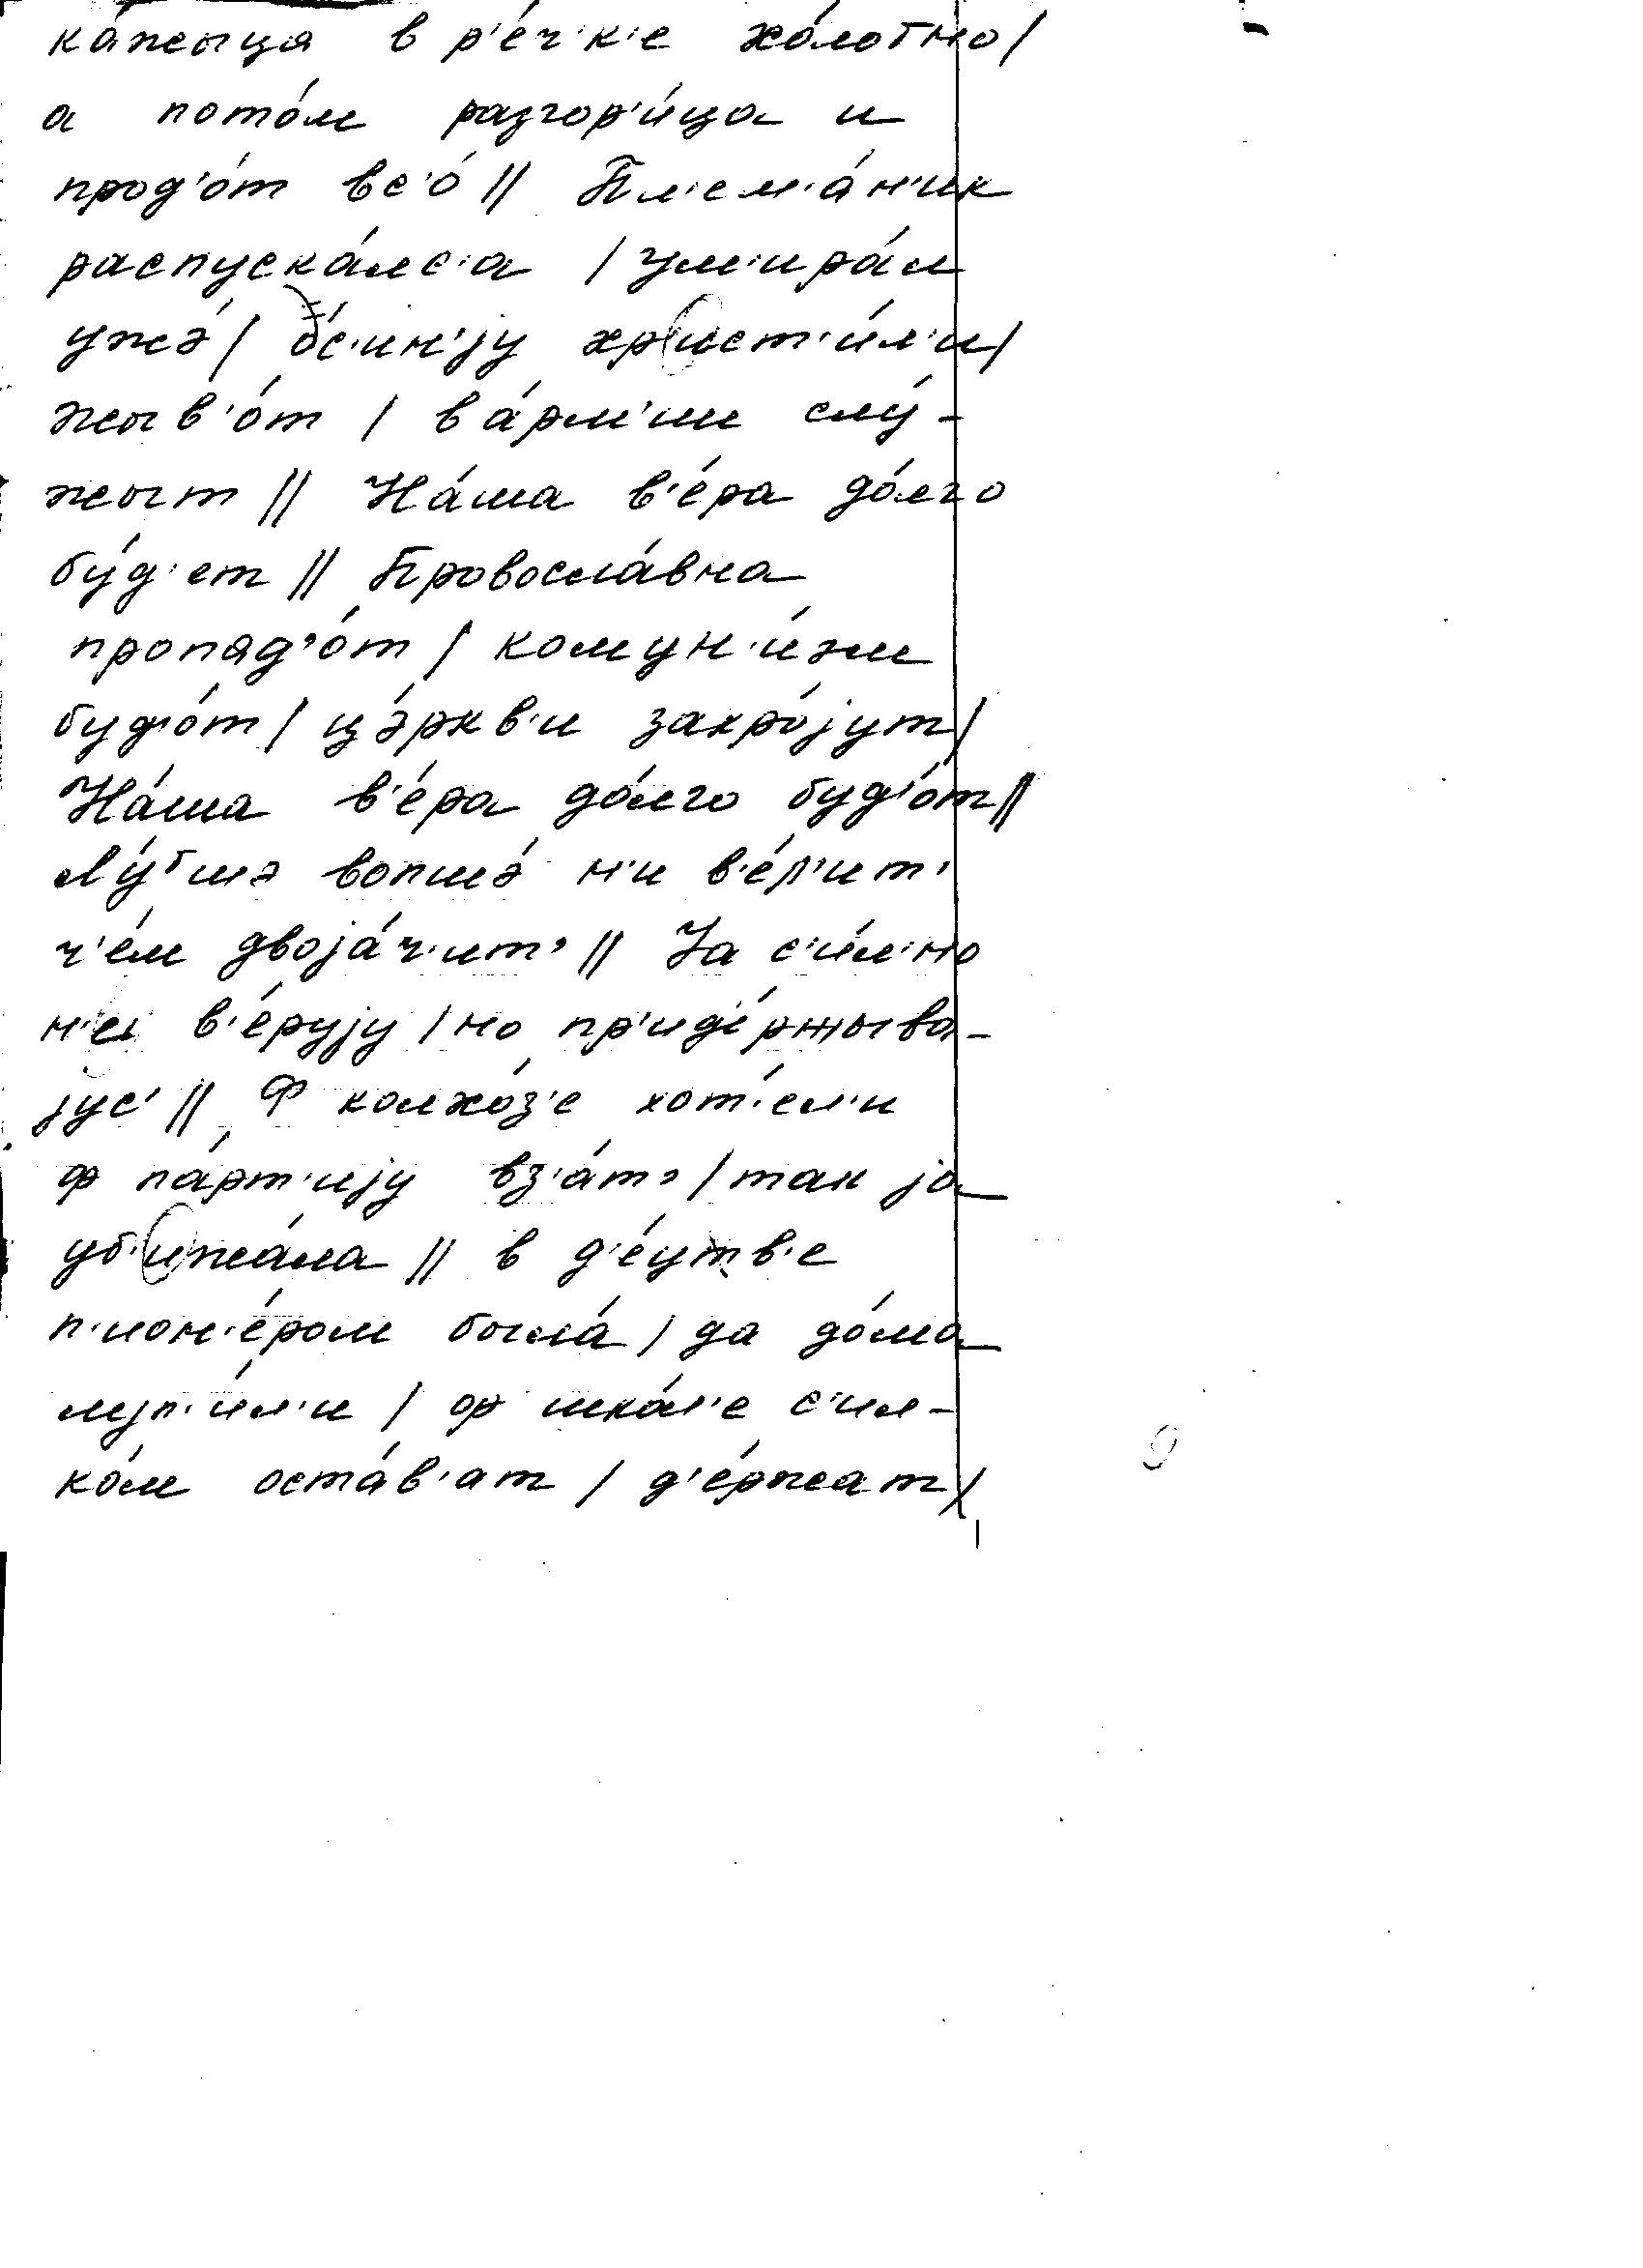 ка́жыца в р'е́ч'к'е хо́лотно /
а пото́м разгор'и́ца и
прод'о́т вс'о́ // Пл'ем'а́н'ик
распуска́лс'а / ум'ира́л
ужэ́ / о́с'ин'jу христ'и́л'и /
жыв'о́т / в а́рм'ии слу́-
жыт // На́ша в'е́ра до́лго
бу́д'ет // Провосла́вна
пропад'о́т / комун'и́зм
буд'о́т / цэ́ркв'и закро́jут /
На́ша в'е́ра до́лго буд'о́т //
Лу́тшэ вопшэ́ н'и в'е́р'ит'
ч'ем двоjа́ч'ит' // Jа с'и́л'но
н'е в'е́руjу / но пр'ид'е́ржыва-
jус' // Ф колхо́з'е хот'е́л'и
ф па́рт'иjу вз'ат' / так jа
уб'ижа́ла // в д'е́цтв'е
п'ион'е́ром была́ / да до́ма
луп'и́л'и / ф шко́л'е с'ил-
ко́м оста́в'ат / д'е́ржат /